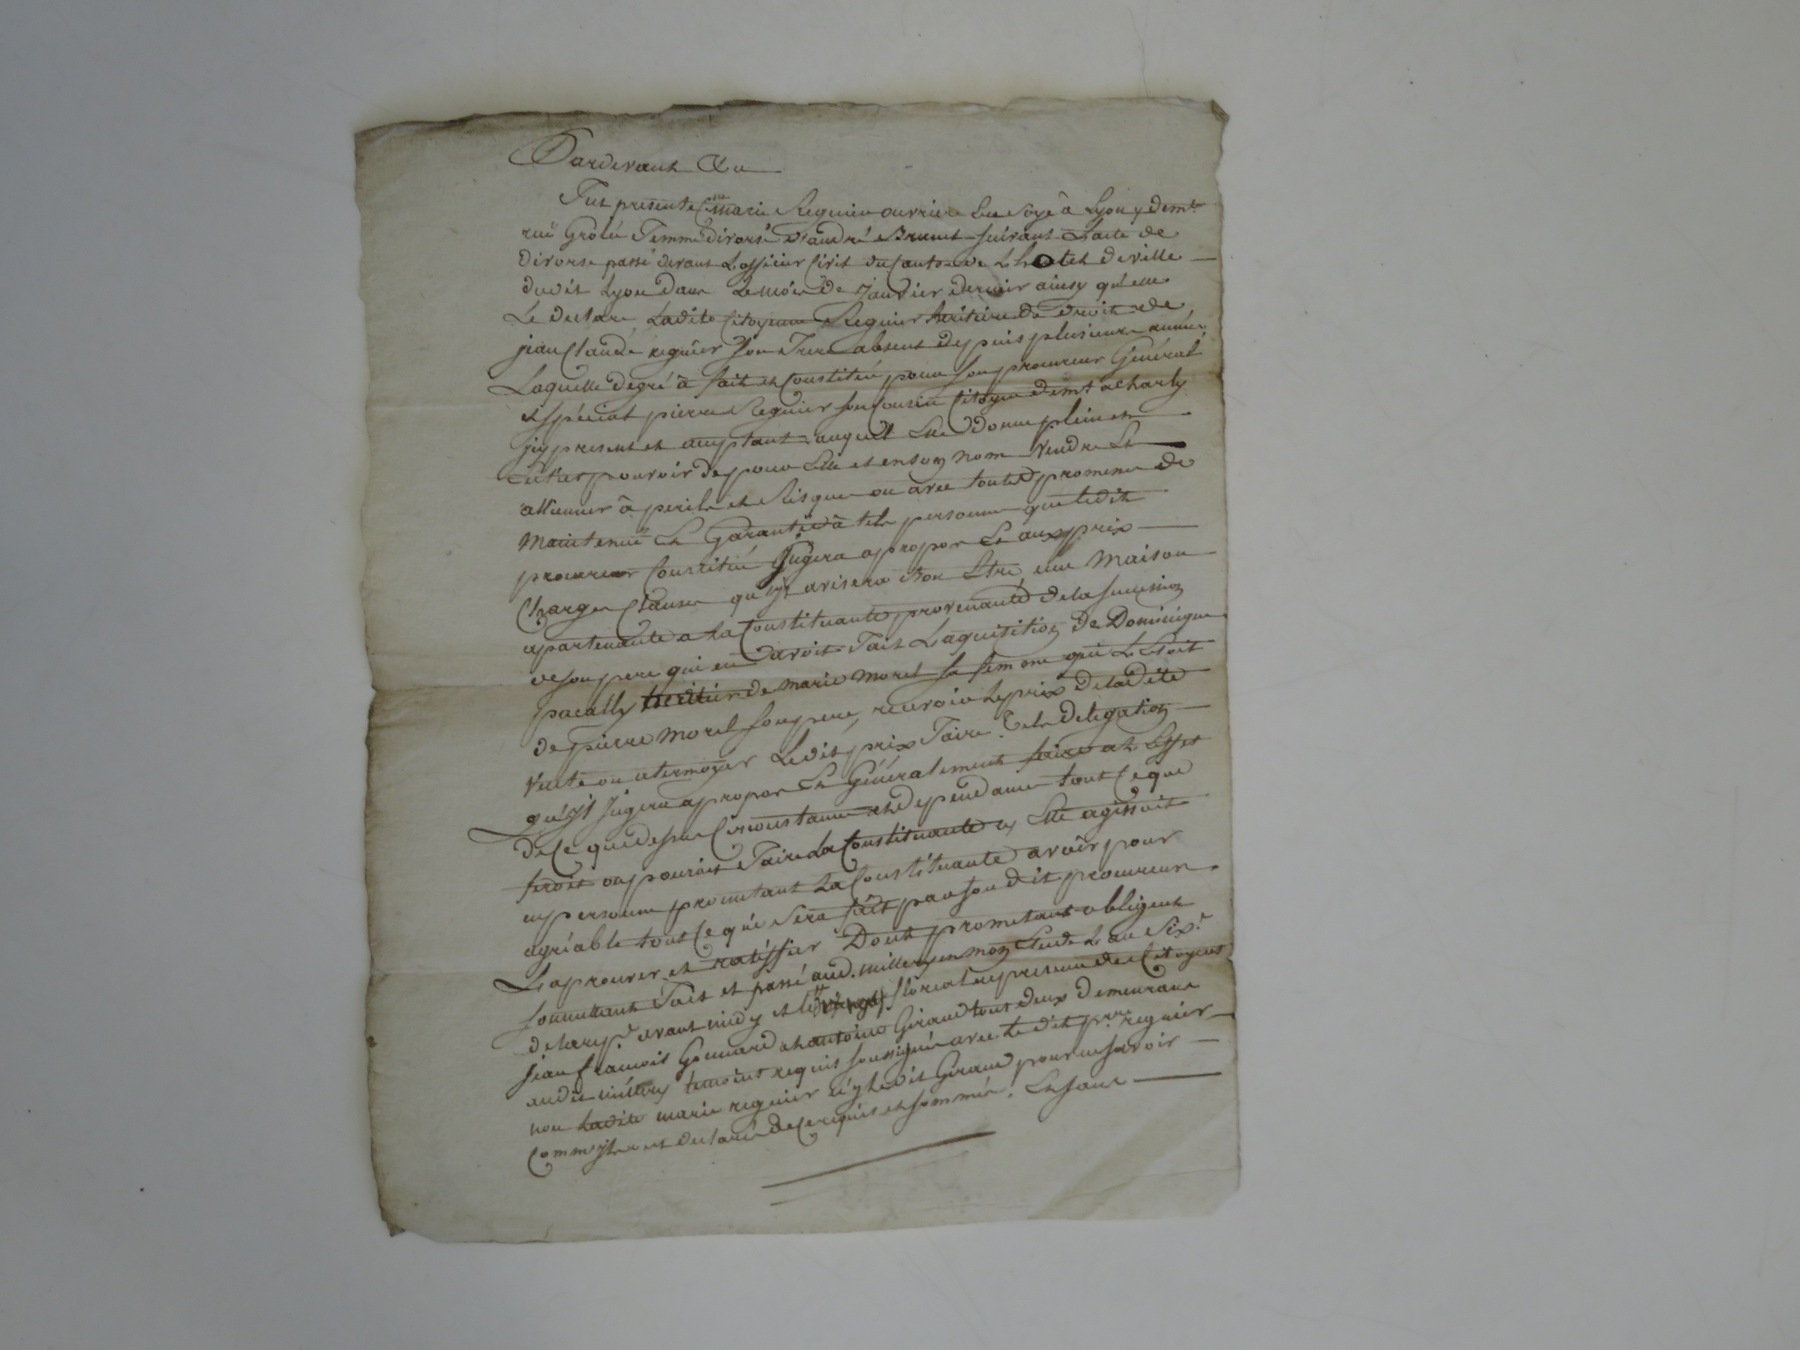 Pardevant &a
Fut presente C.ne marie Regnier ouvriere En Soye à Lyon y dem.te
ruë Grolée Femme divorsé d'andré Brunet suivant L'acte de
divorse passé devant Lofficier Civil du Canton de Lhotel de ville
dudit Lyon dans Le mois de Janvier dernier ainsy qu'elle
Le declare, Ladite Citoyenne Regnier heritiere de droit de
jean Claude regnier Son Frere absent depuis plusieurs année
Laquelle degré à fait et Constitué pour son procureur Général
et spécial pierre Regnier son Cousin Citoyen dem.t a Charly
jcy present et aceptant auquel Elle donne plein et
entier pouvoir de pour Elle et en son nom Vendre Et
allienner à perils et Risques ou avec toutes promesse de
maintenuë Et Garantie à tele personne que ledit
procureur Constitué Jugera apropos Et aux prix
Charges Clauses qu'jl avisera bon Etre, une Maison
apartenante a La Constituante provenante de la sucession
de son pere qui en avoit Fait Laquisition de Dominique
pacally heritier de marie morel sa femme qui Letoit
de pierre morel son pere, recevoir Le prix de la dite
Vente ou atermoyer Ledit prix Faire Tele delegation
qu'jl Jugera apropos Et Généralement faire a L'Effet
de Ce que dessus Circonstance et dependance tout Ce que
feroit ou pouroit Faire La Constituante sy Elle agissoit
en personne promettant La Constituante avoir pour
agréable tout Ce qui Sera fait par son dit procureur
L'aprouver et ratiffier Dont promettant obligent
soumettant Fait et passé aud. millery en mon Etude L'an Six.e
de la rep.e avant midy et le floreal en presence de Citoyens
jean François Gonnard et antoine Giraud tout deux demeurant
audit millery temoins requis soussignés avec le dit p.re regnier
non Ladite marie regnier ny Ledit Giraud pour ne savoir
Comm'jls ont declaré de Ce requis et sommés. Lesquels